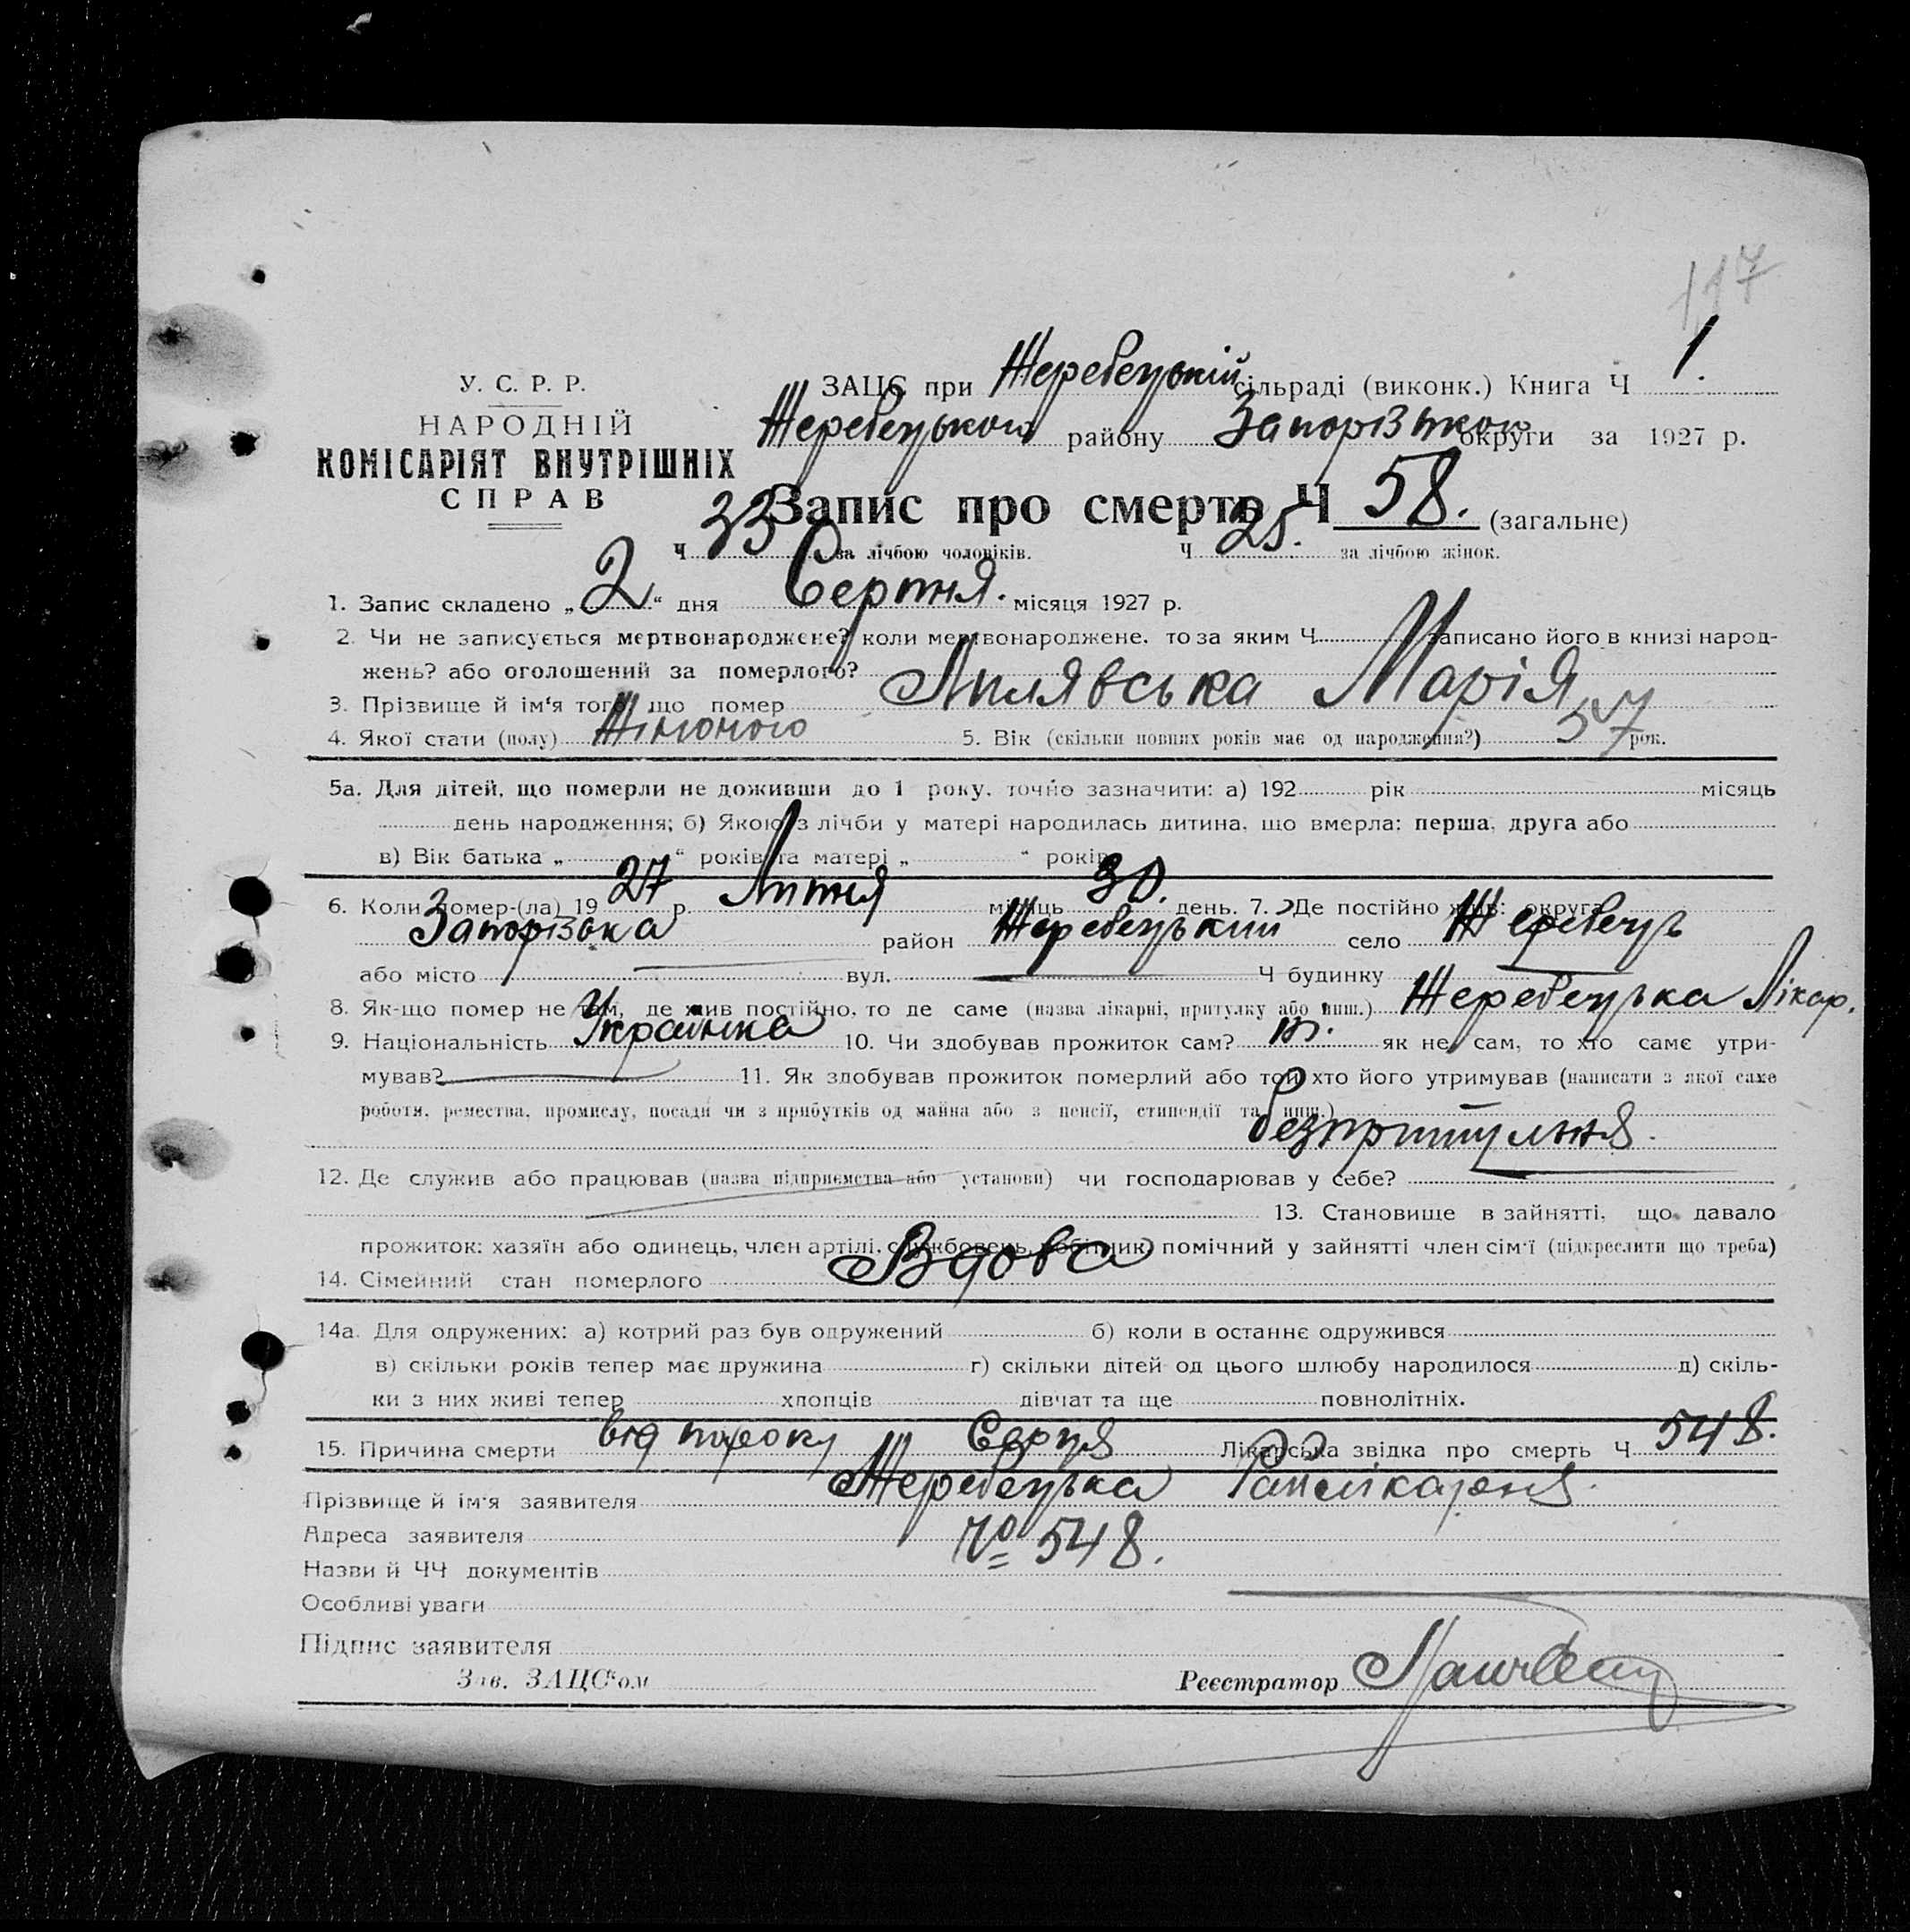 117
У. С. Р. Р.
НАРОДНІЙ
КОМІСАРІЯТ ВНУТРІШНІХ
СПРАВ
ЗАЦС при Жеребецькій сільраді (виконк.) Книга Ч 1.
Жеребецького району Запорізької округи за 1927 р.
Запис про смерть Ч 58. (загальне)
Ч 33 за лічбою чоловіків. Ч 25. за лічбою жінок.
1. Запис складено „2“ дня Серпня. місяця 1927 р.
2. Чи не записується мертвонароджене? коли мертвонароджене, то за яким Ч записано його в книзі народ-
жень? або оголошений за померлого?
3. Прізвище й ім'я того, що помер Лилявська Марія
4. Якої стати (полу) Жіночого 5. Вік (скільки повних років має од народження?) 57 рок.
5а. Для дітей, що померли не доживши до 1 року, точно зазначити: а) 192 рік місяць
день народження; б) Якою з лічби у матері народилась дитина, що вмерла: перша, друга або
в) Вік батька „ “ років та матері „ “ років
6. Коли помер-(ла) 1927 р. Липня місяць 30. день. 7. Де постійно жив: округа
Запорізька район Жеребецький село Жеребець
або місто вул. Ч будинку
8. Як-що помер не там, де жив постійно, то де саме (назва лікарні, притулку або инш.) Жеребецька Лікар.
9. Національність Українка 10. Чи здобував прожиток сам? як не сам, то хто саме утри-
мував? 11. Як здобував прожиток померлий або той хто його утримував (написати з якої саме
роботи, ремества, промислу, посади чи з прибутків од майна або з пенсії, стипендії та инш.)
безпритульня.
12. Де служив або працював (назва підприємства або установи) чи господарював у себе?
13. Становище в зайнятті, що давало
прожиток: хазяїн або одинець, член артілі, службовець, робітник, помічний у зайнятті член сім'ї (підкреслити що треба)
14. Сімейний стан померлого Вдова
14а. Для одружених: а) котрий раз був одружений б) коли в останнє одружився
в) скільки років тепер має дружина г) скільки дітей од цього шлюбу народилося д) скіль-
ки з них живі тепер хлопців дівчат та ще повнолітніх.
15. Причина смерти від пороку Серця Лікарська звідка про смерть Ч 548.
Прізвище й ім'я заявителя Жеребецька Райлікарня.
Адреса заявителя
Назви й ЧЧ документів № 548.
Особливі уваги
Підпис заявителя
Зав. ЗАЦС'ом Реєстратор